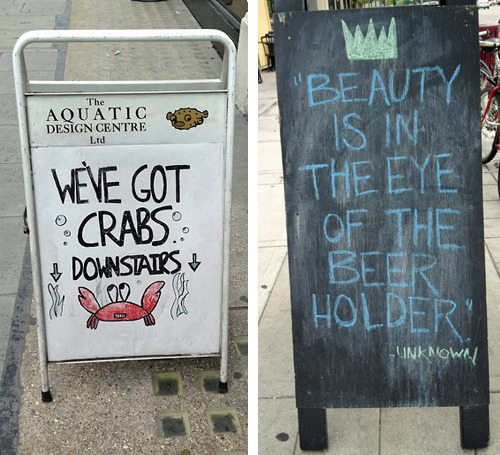 The
AQUATIC
DESIGN CENTRE
Ltd
WE'VE GOT
CRABS.
DOWNSTAIRS
"BEAUTY
IS IN
THE EYE
OF THE
BEER
HOLDER."
-UNKNOWN